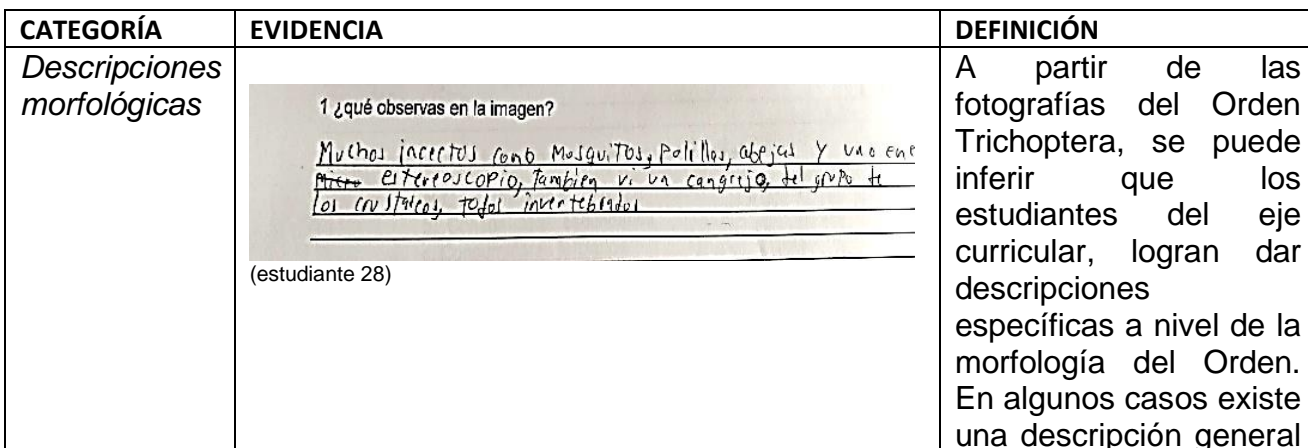 CATEGORÍA
EVIDENCIA
DEFINICIÓN
Descripciones
morfológicas
1 ¿qué observas en la imagen?
Muchos incectos como Mosquitos, Polillas, abejas y uno en e
Micro estereoscopio, tambien vi un cangrejo, del grupo de
los crustaceos, todos invertebrados
(estudiante 28)
A partir de las
fotografías del Orden
Trichoptera, se puede
inferir que los
estudiantes del eje
curricular, logran dar
descripciones
específicas a nivel de la
morfología del Orden.
En algunos casos existe
una descripción general